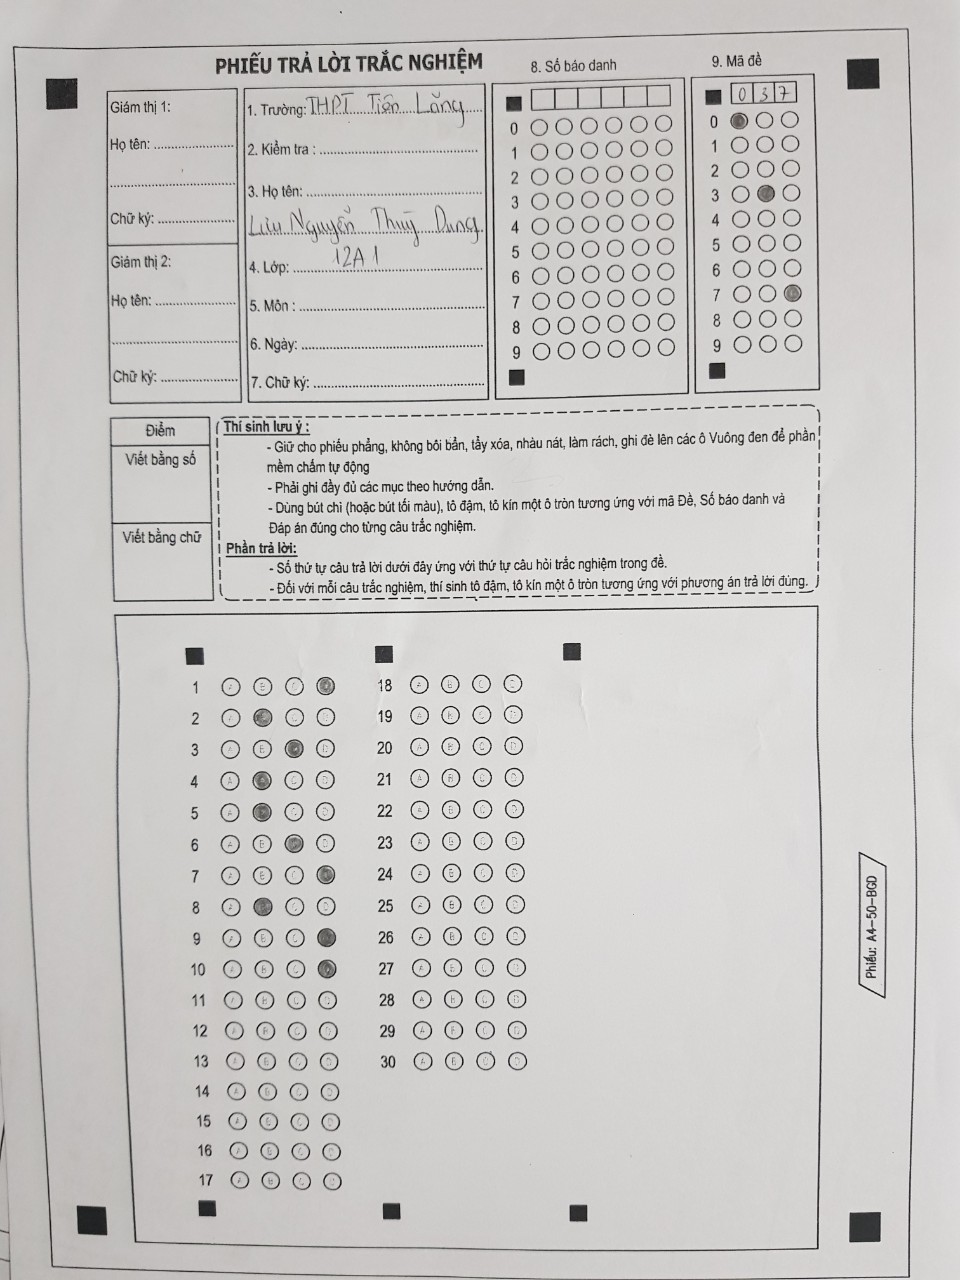 PHIẾU TRẢ LỜI TRẮC NGHIỆM
Giám thị 1:
Họ tên: ........................
........................
Chữ ký: ........................
Giám thị 2:
Họ tên: ........................
........................
Chữ ký: ........................
1. Trường: THPT Tiên Lãng
2. Kiểm tra : ........................
3. Họ tên: ........................
Lưu Nguyễn Thuỳ Dung
4. Lớp: 12A1
5. Môn : ........................
6. Ngày: ........................
7. Chữ ký: ........................
8. Số báo danh
0
1
2
3
4
5
6
7
8
9
9. Mã đề
0 3 7
0
1
2
3
4
5
6
7
8
9
Điểm
Viết bằng số
Viết bằng chữ
Thí sinh lưu ý :
- Giữ cho phiếu phẳng, không bôi bẩn, tẩy xóa, nhàu nát, làm rách, ghi đè lên các ô Vuông đen để phần
mềm chấm tự động
- Phải ghi đầy đủ các mục theo hướng dẫn.
- Dùng bút chì (hoặc bút tối màu), tô đậm, tô kín một ô tròn tương ứng với mã Đề, Số báo danh và
Đáp án đúng cho từng câu trắc nghiệm.
Phần trả lời:
- Số thứ tự câu trả lời dưới đây ứng với thứ tự câu hỏi trắc nghiệm trong đề.
- Đối với mỗi câu trắc nghiệm, thí sinh tô đậm, tô kín một ô tròn tương ứng với phương án trả lời đúng.
1 A B C
2 A C D
3 A B D
4 A C D
5 A C D
6 A B D
7 A B C
8 A C D
9 A B C
10 A B C
11 A B C D
12 A B C D
13 A B C D
14 A B C D
15 A B C D
16 A B C D
17 A B C D
18 A B C D
19 A B C D
20 A B C D
21 A B C D
22 A B C D
23 A B C D
24 A B C D
25 A B C D
26 A B C D
27 A B C D
28 A B C D
29 A B C D
30 A B C D
Phiếu: A4-50-BGD